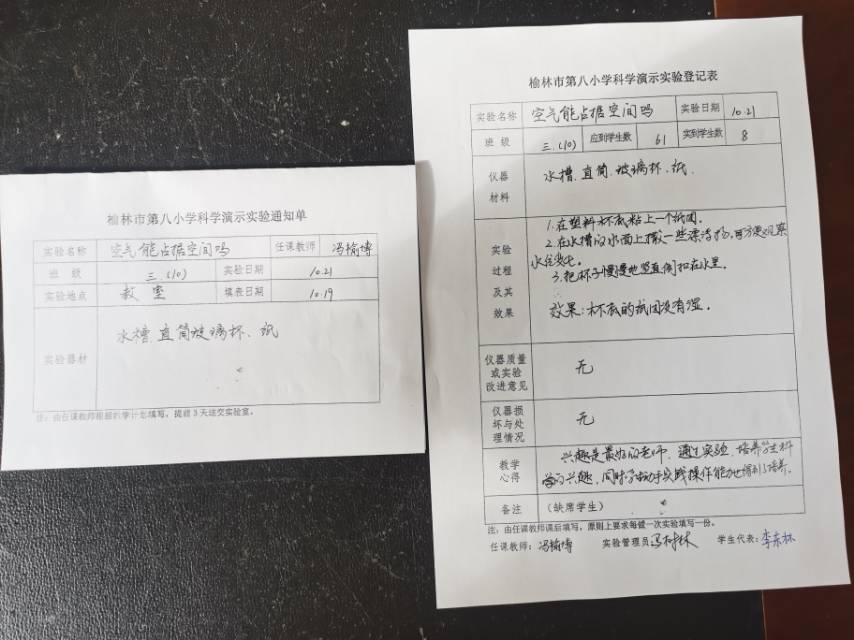 榆林市第八小学科学演示实验通知单
实验名称 空气能占据空间吗 任课教师 冯榆博
班 级 三.(10) 实验日期 10.21
实验地点 教室 填表日期 10.19
实验器材 水槽.直筒玻璃杯、纸
注：由任课教师根据教学计划填写，提前3天送交实验室。
榆林市第八小学科学演示实验登记表
实验名称 空气能占据空间吗 实验日期 10.21
班 级 三.(10) 应到学生数 61 实到学生数 8
仪器材料 水槽.直筒.玻璃杯、纸.
实验过程及其效果
1.在塑料杯底粘上一个纸团。
2.在水槽的水面上撒一些漂浮物,可方便观察
水位变化。
3.把杯子慢慢地竖直倒扣在水里。
效果:杯底的纸团没有湿。
仪器质量或实验改进意见 无
仪器损坏与处理情况 无
教学心得 兴趣是最好的老师、通过实验、培养学生科
学的兴趣、同时学生动手实践操作能力也得到了培养.
备注 （缺席学生）
注，由任课教师课后填写，原则上要求每做一次实验填写一份。
任课教师：冯榆博 实验管理员 冯树林 学生代表：李东林